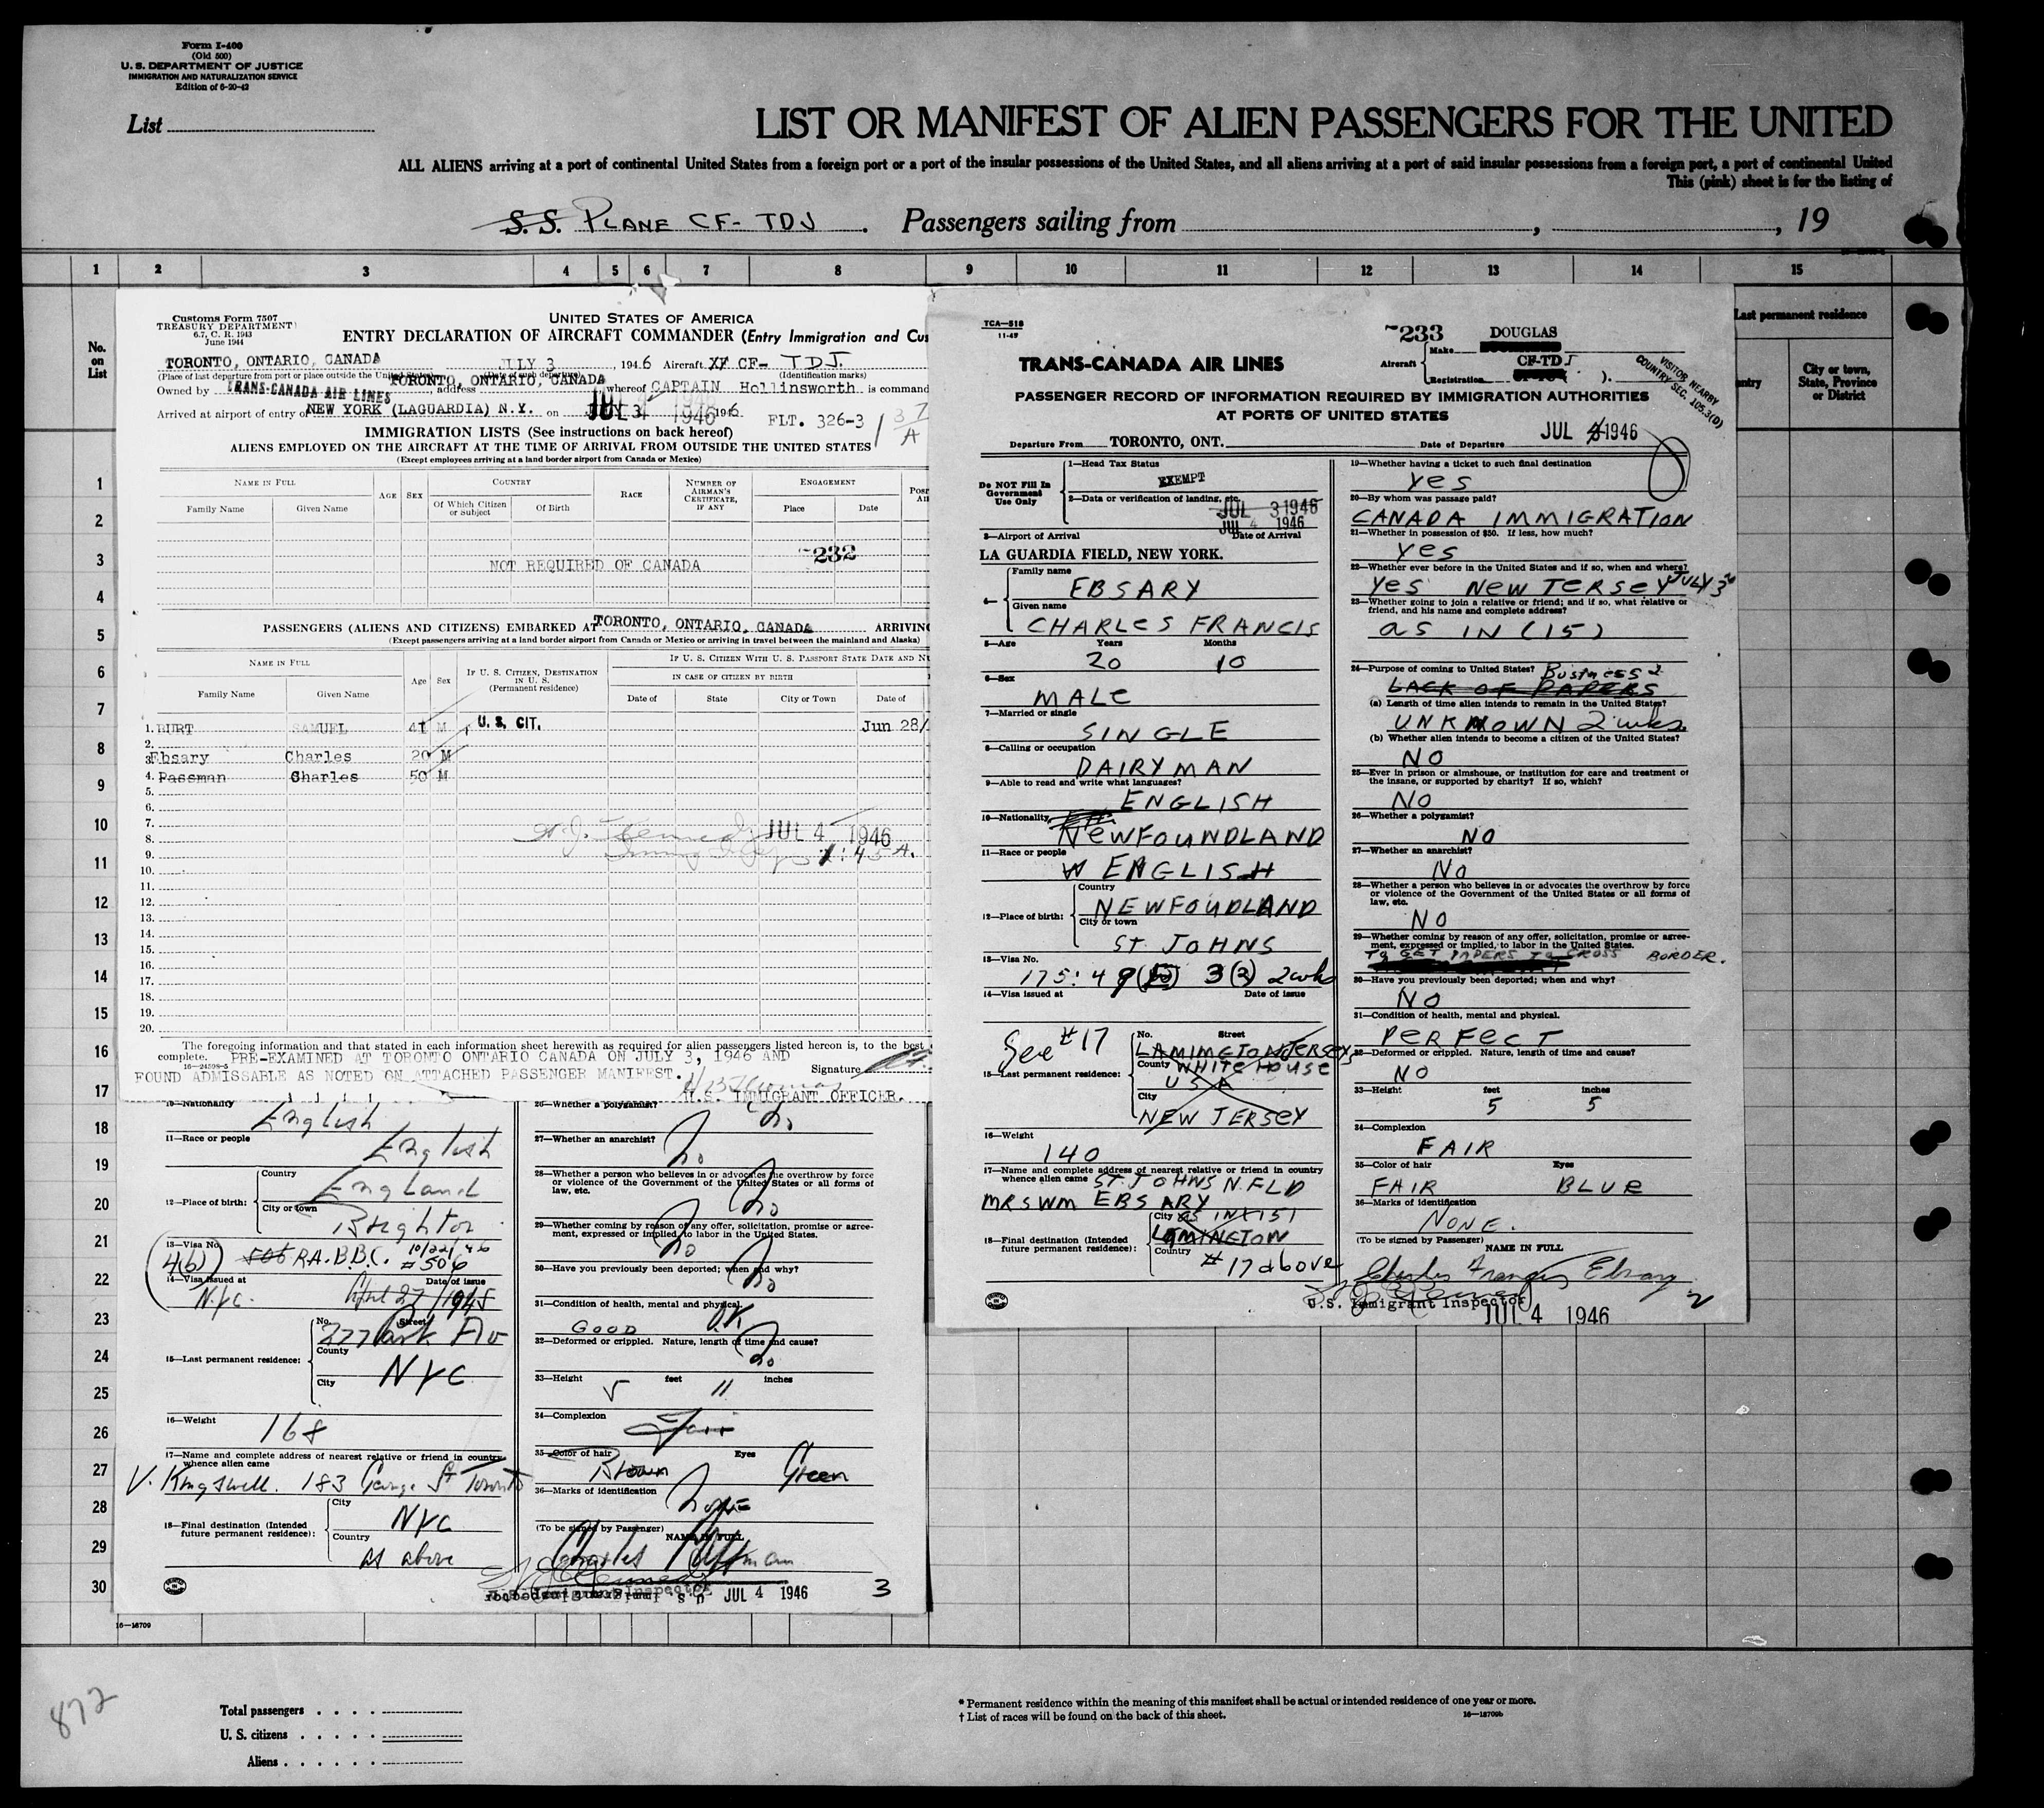 Form I-400
(Old 500)
U. S. DEPARTMENT OF JUSTICE
IMMIGRATION AND NATURALIZATION SERVICE
Edition of 6-20-42
List
LIST OR MANIFEST OF ALIEN PASSENGERS FOR THE UNITED
ALL ALIENS arriving at a port of continental United States from a foreign port or a port of the insular possessions of the United States, and all aliens arriving at a port of said insular possessions from a foreign port, a port of continental United
This (pink) sheet is for the listing of
S.S. PLANE CF-TDJ . Passengers sailing from , , 19
1 2 3 4 5 6 7 8 9 10 11 12 13 14 15
No. on List
Last permanent residence
City or town, State, Province or District
1
2
3
4
5
6
7
8
9
10
11
12
13
14
15
16
17
18
19
20
21
22
23
24
25
26
27
28
29
30
Customs Form 7507
TREASURY DEPARTMENT
6.7, C. R. 1943
June 1944
UNITED STATES OF AMERICA
ENTRY DECLARATION OF AIRCRAFT COMMANDER (Entry Immigration and Cus
TORONTO, ONTARIO, CANADA JULY 3 , 1946 Aircraft CF- TDJ.
(Place of last departure from port or place outside the United States) (Identification marks)
Owned by TRANS-CANADA AIR LINES , address TORONTO, ONTARIO, CANADA whereof CAPTAIN Hollinsworth is command
Arrived at airport of entry of NEW YORK (LAGUARDIA) N.Y. on JUL 4 1946 FLT. 326-3
IMMIGRATION LISTS (See instructions on back hereof)
ALIENS EMPLOYED ON THE AIRCRAFT AT THE TIME OF ARRIVAL FROM OUTSIDE THE UNITED STATES
(Except employees arriving at a land border airport from Canada or Mexico)
NAME IN FULL AGE SEX COUNTRY RACE NUMBER OF AIRMAN'S CERTIFICATE, IF ANY ENGAGEMENT
Family Name Given Name Of Which Citizen or Subject Of Birth Place Date
232
NOT REQUIRED OF CANADA
PASSENGERS (ALIENS AND CITIZENS) EMBARKED AT TORONTO, ONTARIO, CANADA ARRIVING
(Except passengers arriving at a land border airport from Canada or Mexico or arriving in travel between the mainland and Alaska)
NAME IN FULL Age Sex IF U. S. CITIZEN, DESTINATION IN U. S. (Permanent residence) IF U. S. CITIZEN WITH U. S. PASSPORT STATE DATE AND NU
IN CASE OF CITIZEN BY BIRTH
Family Name Given Name Date of State City or Town Date of
1. BURT SAMUEL 41 M U. S. CIT. Jun 28/
2.
3. Ebsary Charles 20 M
4. Passman Charles 50 M
5.
6.
7.
8. JUL 4 1946
9.
10.
11.
12.
13.
14.
15.
16.
17.
18.
19.
20.
The foregoing information and that stated in each information sheet herewith as required for alien passengers listed hereon is, to the best
complete. PRE-EXAMINED AT TORONTO ONTARIO CANADA ON JULY 3, 1946 AND
16—24598-5
FOUND ADMISSABLE AS NOTED ON ATTACHED PASSENGER MANIFEST. Signature
U.S. IMMIGRANT OFFICER.
10—Nationality English
11—Race or people English
12—Place of birth: Country England
City or town Brighton
13—Visa No. 4(b) R.A.B.B.C. # 506
14—Visa issued at Date of issue
N.Y.C. April 27/1945
15—Last permanent residence: No. Street 277 Park Av
County
City NYC
16—Weight 168
17—Name and complete address of nearest relative or friend in country whence alien came
V. Kingswell. 183 George St Toronto
18—Final destination (Intended future permanent residence): City NYC
Country as above
26—Whether a polygamist? No
27—Whether an anarchist? No
28—Whether a person who believes in or advocates the overthrow by force or violence of the Government of the United States or all forms of law, etc. No
29—Whether coming by reason of any offer, solicitation, promise or agreement, expressed or implied, to labor in the United States. No
30—Have you previously been deported; when and why? No
31—Condition of health, mental and physical. GOOD O.K.
32—Deformed or crippled. Nature, length of time and cause? No
33—Height 5 feet 11 inches
34—Complexion Fair
35—Color of hair Brown Eyes Green
36—Marks of identification None
(To be signed by Passenger) NAME IN FULL
Charles Passman
JUL 4 1946
3
TCA—518
11-45
233
TRANS-CANADA AIR LINES
Aircraft Make DOUGLAS
Registration CF-TDJ ).
VISITOR NEARBY COUNTRY SEC. 105.3(D)
PASSENGER RECORD OF INFORMATION REQUIRED BY IMMIGRATION AUTHORITIES
AT PORTS OF UNITED STATES
Departure From TORONTO, ONT. Date of Departure JUL 3 1946
Do NOT Fill In Government Use Only
1—Head Tax Status EXEMPT
2—Data or verification of landing, etc.
JUL 3 1946
JUL 4 1946
3—Airport of Arrival Date of Arrival
LA GUARDIA FIELD, NEW YORK.
4— Family name EBSARY
Given name CHARLES FRANCIS
5—Age Years 20 Months 10
6—Sex MALE
7—Married or single SINGLE
8—Calling or occupation DAIRYMAN
9—Able to read and write what languages? ENGLISH
10—Nationality NEWFOUNDLAND
11—Race or people W ENGLISH
12—Place of birth: Country NEWFOUDLAND
City or town ST JOHNS
13—Visa No. 175:4 3(2) 2wks
14—Visa issued at Date of issue
See #17
15—Last permanent residence: No. Street LAMIMGTON JERSEY
County WHITEHOUSE
USA
City NEW JERSEY
16—Weight 140
17—Name and complete address of nearest relative or friend in country whence alien came ST. JOHNS N.FLD
MRS WM EBSARY
18—Final destination (Intended future permanent residence): City AS IN (15)
LAMINGTON
Country #17 above
19—Whether having a ticket to such final destination Yes
20—By whom was passage paid? CANADA IMMIGRATION
21—Whether in possession of $50. If less, how much? Yes
22—Whether ever before in the United States and if so, when and where? Yes NEW JERSEY JULY 3
23—Whether going to join a relative or friend; and if so, what relative or friend, and his name and complete address? as IN (15)
24—Purpose of coming to United States? Business
LACK OF PAPERS
(a) Length of time alien intends to remain in the United States? UNKNOWN 2 wks.
(b) Whether alien intends to become a citizen of the United States? NO
25—Ever in prison or almshouse, or institution for care and treatment of the insane, or supported by charity? If so, which? NO
26—Whether a polygamist? NO
27—Whether an anarchist? No
28—Whether a person who believes in or advocates the overthrow by force or violence of the Government of the United States or all forms of law, etc. NO
29—Whether coming by reason of any offer, solicitation, promise or agreement, expressed or implied, to labor in the United States.
TO GET PAPERS TO CROSS BORDER.
30—Have you previously been deported; when and why? NO
31—Condition of health, mental and physical. PERFECT
32—Deformed or crippled. Nature, length of time and cause? NO
33—Height feet 5 inches 5
34—Complexion FAIR
35—Color of hair FAIR Eyes BLUE
36—Marks of identification NONE.
(To be signed by Passenger) NAME IN FULL
Charles Francis Ebsary
U.S. Immigrant Inspector
JUL 4 1946
2
16—18709
872
Total passengers
U. S. citizens
Aliens
* Permanent residence within the meaning of this manifest shall be actual or intended residence of one year or more.
† List of races will be found on the back of this sheet.
16—18709b